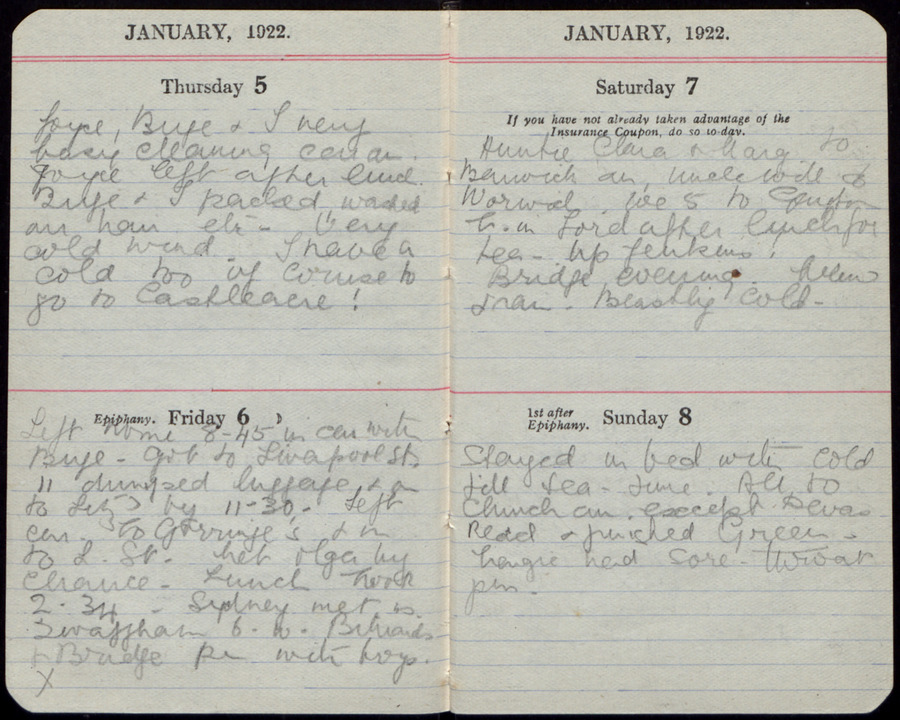 JANUARY, 1922.
Thursday 5
Joyce, Buje & I very
busy cleaning car an.
Joyce left after lunch.
Buje & I packed, washed
an hair etc - Very
cold wind. I have a
cold too of course to
go to Castleacre!
Epiphany. Friday 6
Left home 8-45 in car with
Buje - Got to Liverpool St.
11 dumped luggage & on
to by 11-30 - Left
car. To Gorringe's & on
to L. St. Met Olga by
chance - Lunch Took
2.34 - Sydney met us
Swaffham 6. Billiards
& Bridge pm with boys.
X
JANUARY, 1922.
Saturday 7
If you have not already taken advantage of the
Insurance Coupon, do so to-day.
Auntie Clara & Marg to
an, Uncle Will to
Norwich. We 5 to
in Ford after lunch for
tea - Up Jenkins!
Bridge evening.
train - Beastly cold -
1st after
Epiphany. Sunday 8
Stayed in bed with cold
till tea-time. All to
Church an. except
Read & finished Green -
had sore throat
pm.